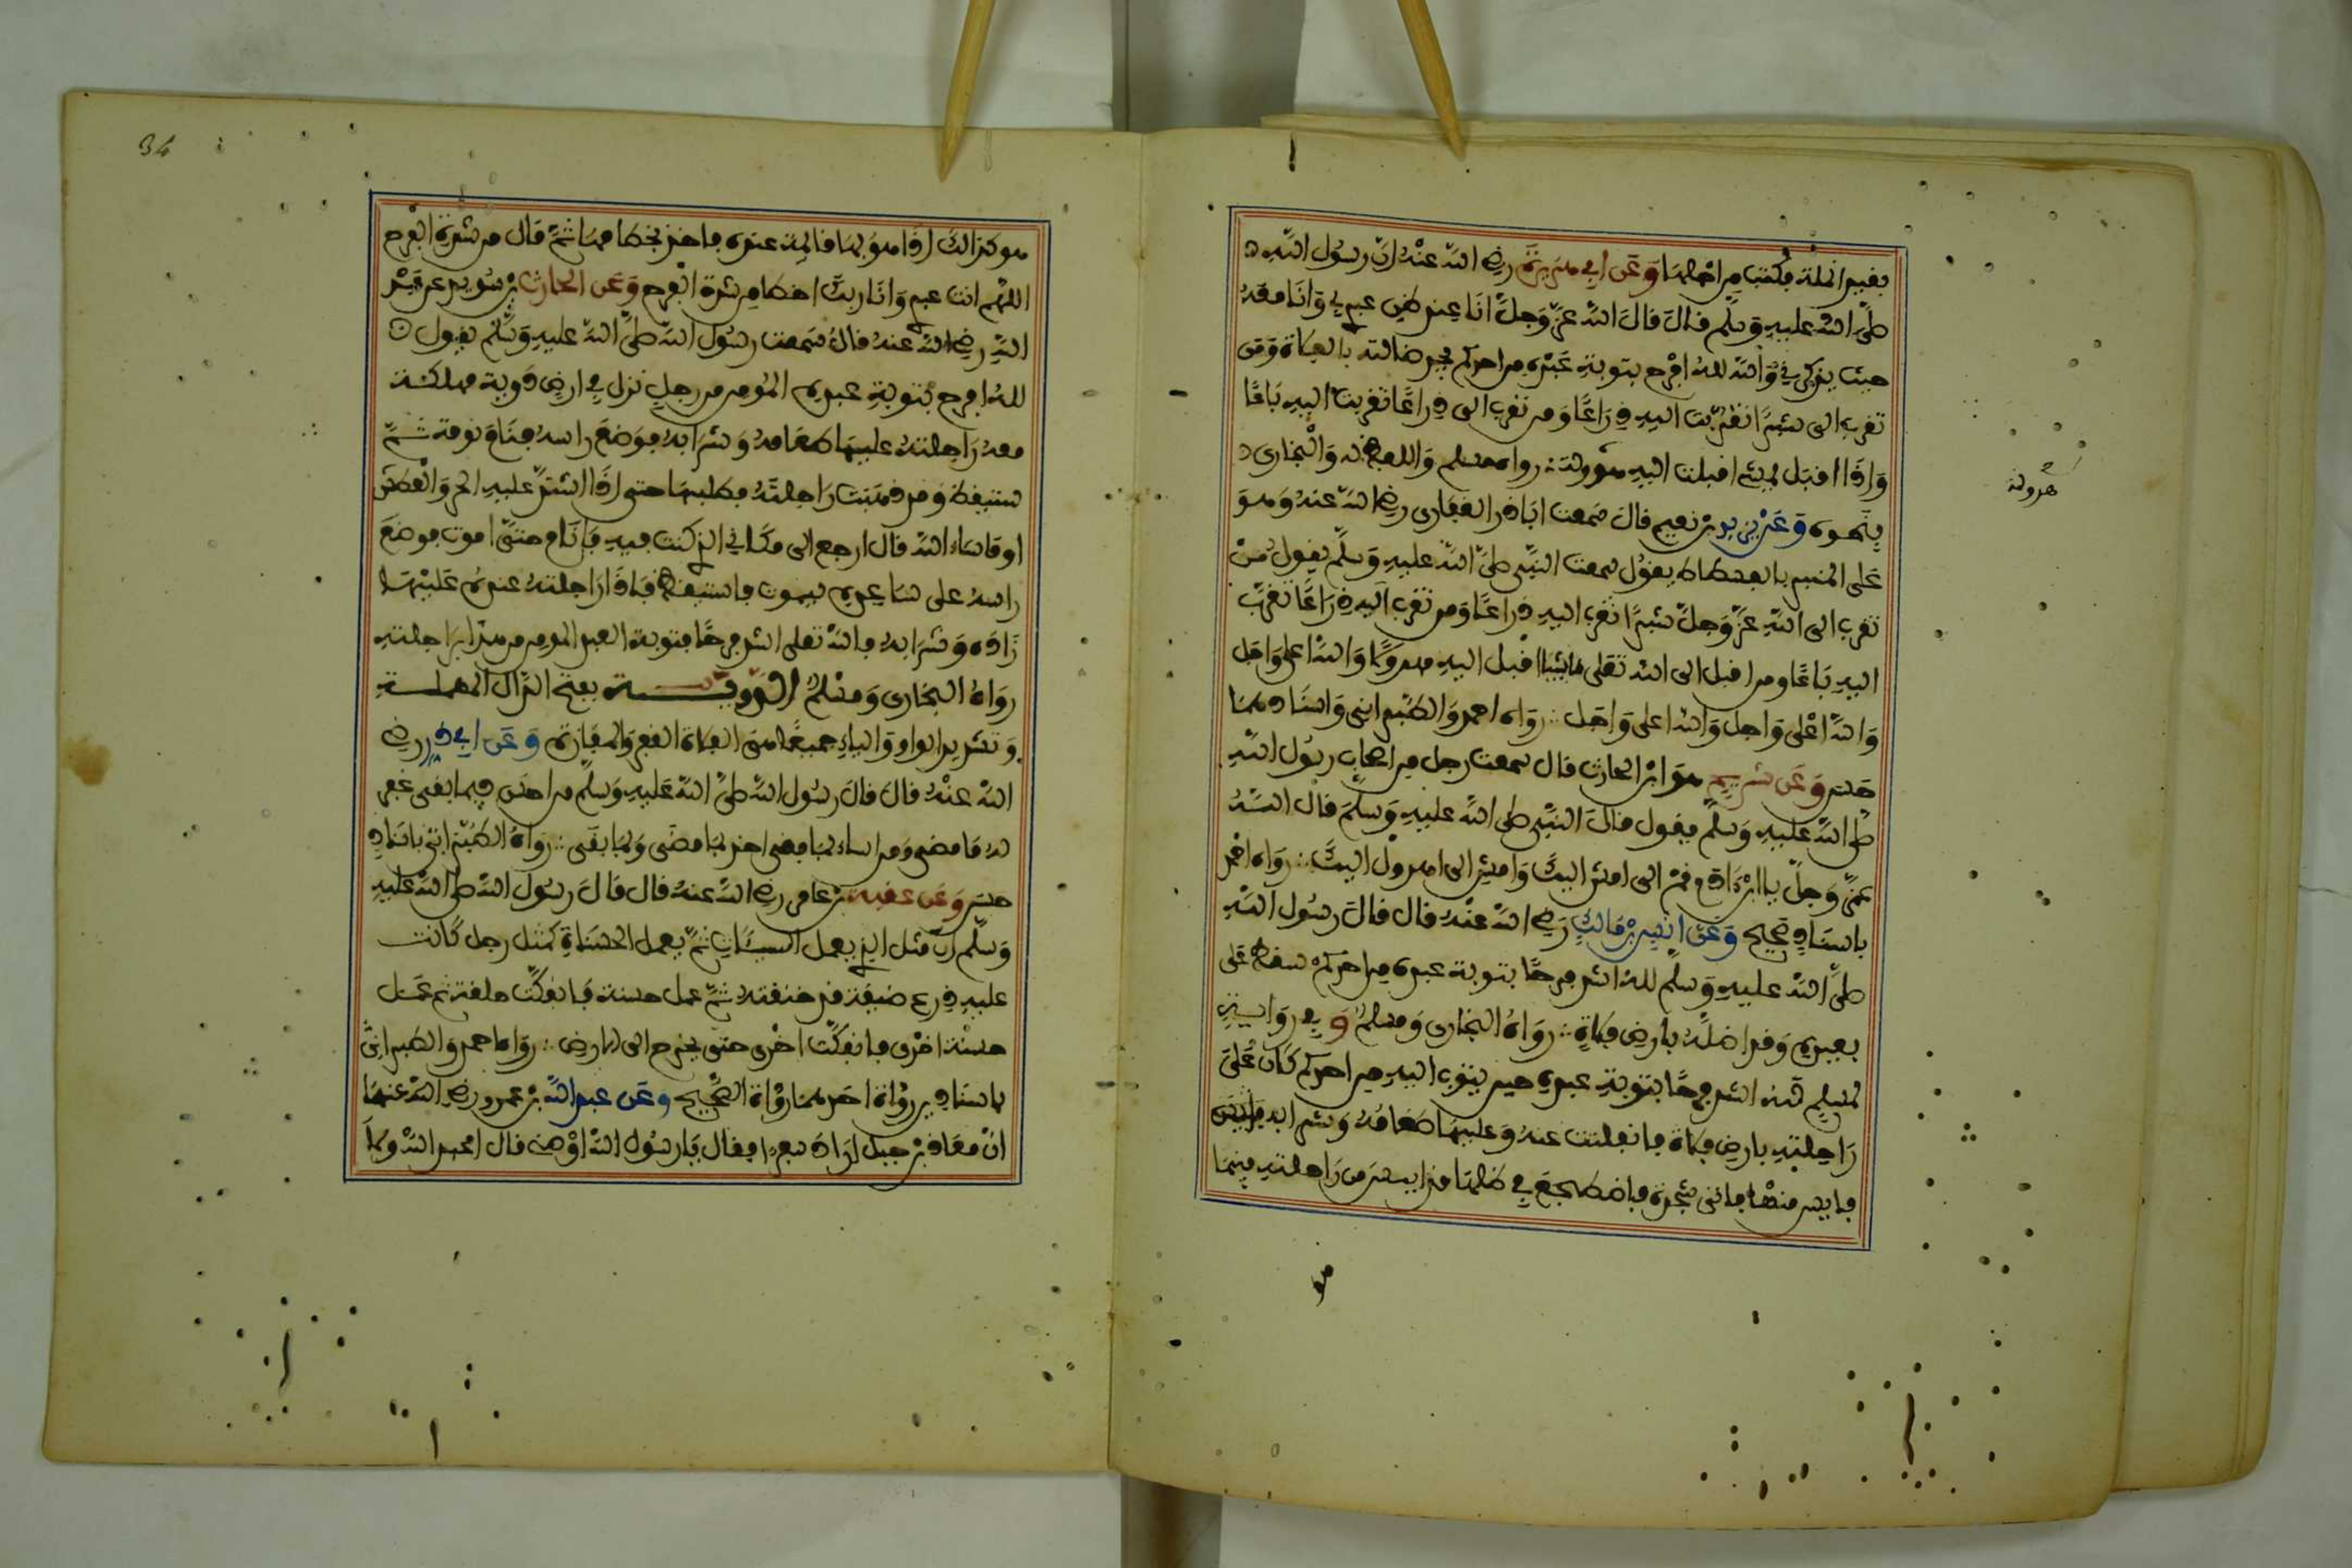 بغير الملة فكتب من اهلها وَعَن ابي هريرة رضي الله عنه ان رسول الله
صلى الله عليه وسلم قال قال الله عز وجل انا عند ظن عبدي بي وانا معه
حيث يذكرني والله لله افرح بتوبة عبده من احدكم يجد ضالته بالفلاة ومن
تقرب الي شبرا تقربت اليه ذراعا ومن تقرب الي ذراعا تقربت اليه باعا
واذا اقبل يمشي اقبلت اليه هرولة رواه مسلم واللفظ له والبخاري
هرولة
بنحوه وعن يزيد بن نعيم قال سمعت ابا ذر الغفاري رضي الله عنه وهو
على المنبر بالفسطاط يقول سمعت النبي صلى الله عليه وسلم يقول من
تقرب الى الله عز وجل شبرا تقرب اليه ذراعا ومن تقرب اليه ذراعا تقرب
اليه باعا ومن اقبل الى الله تعلى ماشيا اقبل اليه مهرولا والله اعلى واجل
والله اعلى واجل والله اعلى واجل رواه احمد والطبراني واسنادهما
حسن وعن شريح هو ابن الحارث قال سمعت رجل من اصحاب رسول الله
صلى الله عليه وسلم يقول قال النبي صلى الله عليه وسلم قال الله
عز وجل يا ابن ءادم قم الي امش اليك وامش الي اهرول اليك رواه احمد
باسناد صحيح وعن انس بن مالك رضي الله عنه قال قال رسول الله
صلى الله عليه وسلم لله اشد فرحا بتوبة عبده من احدكم سقط على
بعيره وقد اضله بارض فلاة رواه البخاري ومسلم وفي رواية
لمسلم لله اشد فرحا بتوبة عبده حين يتوب اليه من احدكم كان على
راحلته بارض فلاة فانفلتت عنه وعليها طعامه وشرابه فايس
فايس منها فاتى شجرة فاضطجع في ظلها قد ايس من راحلته فبينما
هو
34
هو كذالك اذا هو بها قائمة عنده فاخذ بخطامها ثم قال من شدة الفرح
اللهم انت عبدي وانا ربك اخطا من شدة الفرح وعن الحارث بن سويد عن عبد
الله رضي الله عنه قال سمعت رسول الله صلى الله عليه وسلم يقول
لله افرح بتوبة عبده المومن من رجل نزل في ارض دوية مهلكة
معه راحلته عليها طعامه وشرابه فوضع راسه فنام نومة ثم
ستيقظ وقد ذهبت راحلته فطلبها حتى اذا اشتد عليه الحر والعطش
او ما شاء الله قال ارجع الى مكاني الذي كنت فيه فانام حتى اموت فوضع
راسه على ساعده ليموت فاستيقظ فاذا راحلته عنده عليها
زاده وشرابه فالله تعلى اشد فرحا بتوبة العبد المومن من هذا براحلته
رواه البخاري ومسلم الدوية بفتح الدال المهملة
وتشديد الواو والياء جميعا هي الفلاة القفر والمفازة وعن ابي ذر رضي
الله عنه قال قال رسول الله صلى الله عليه وسلم من احسن فيما بقى غفر
له ما مضى ومن اساء فيما بقي اخذ بما مضى وبما بقى رواه الطبراني باسناد
حسن وعن عقبة بن عامر رضي الله عنه قال قال رسول الله صلى الله عليه
وسلم ان مثل الذي يعمل السيئات ثم يعمل الحسنات كمثل رجل كانت
عليه درع ضيقة قد خنقته ثم عمل حسنة فانفكت حلقة ثم عمل
حسنة اخرى فانفكت اخرى حتى يخرج الى الارض رواه احمد والطبراني
باسنادين رواة احدهما رواة الصحيح وعن عبد الله بن عمرو رضي الله عنهما
ان معاذ بن جبل اراد سفرا فقال يا رسول الله اوصني قال اعبد الله ولا